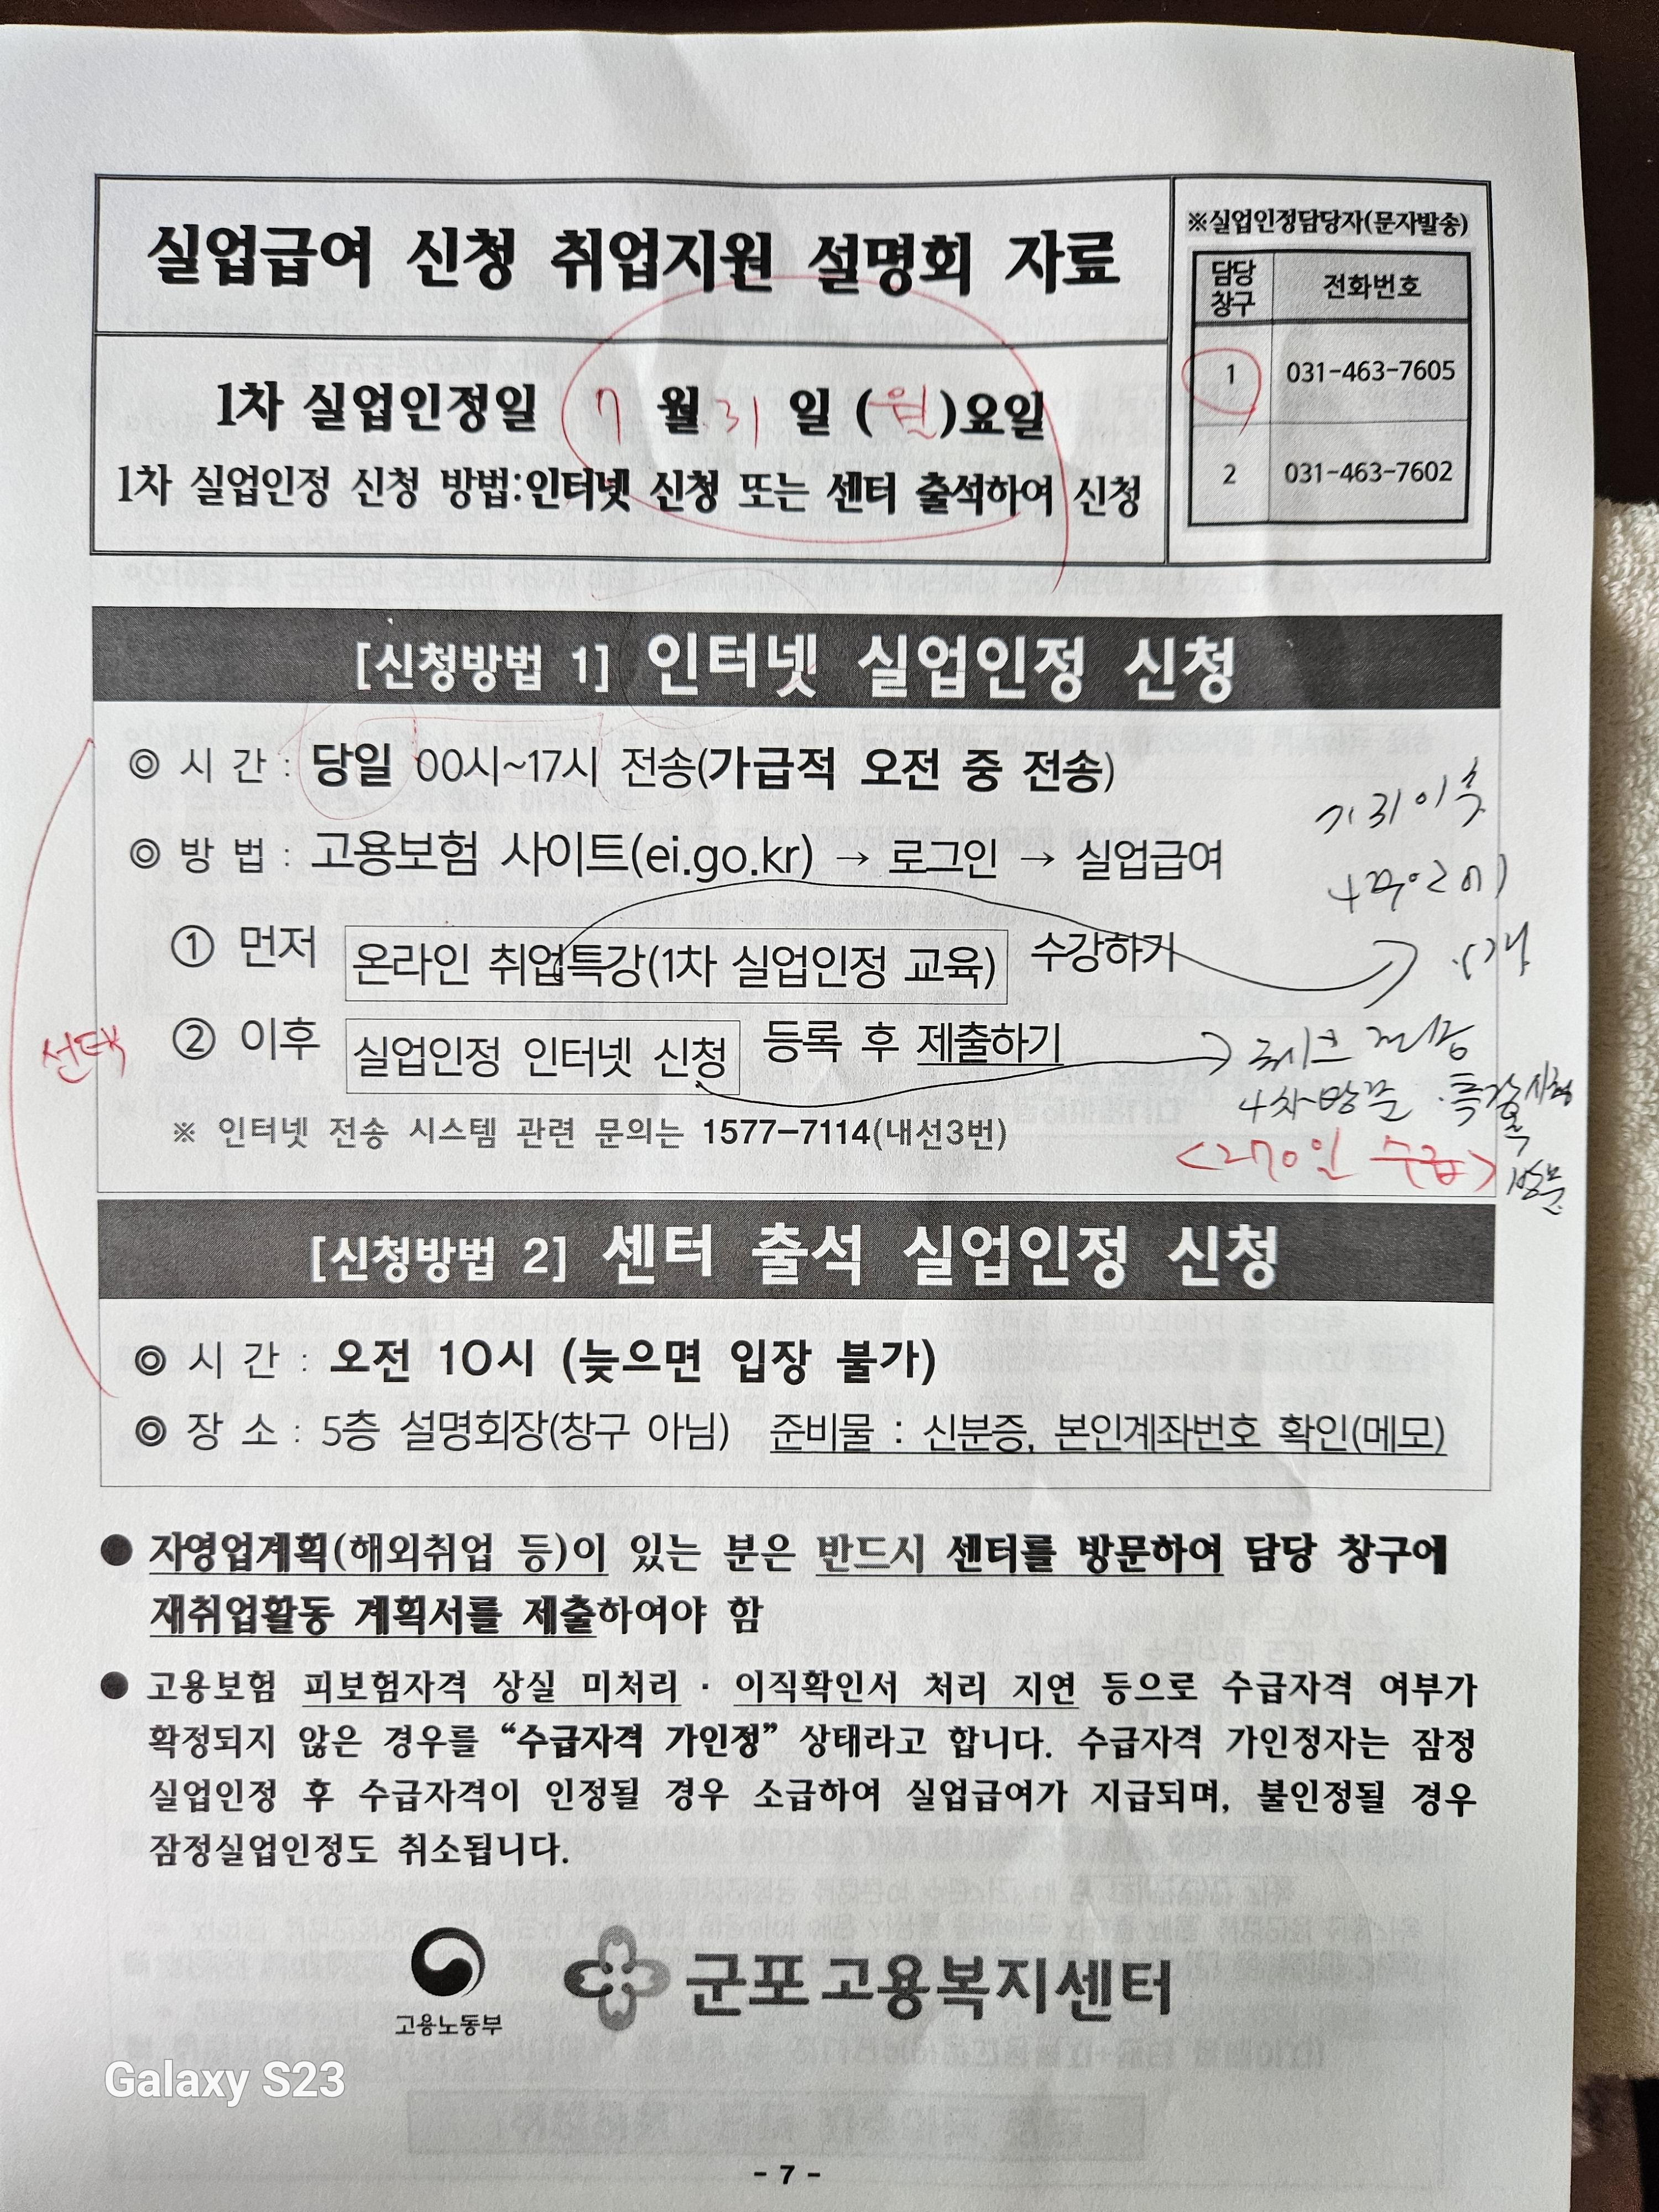 실업급여 신청 취업지원 설명회 자료
※실업인정담당자(문자발송)
담당 창구 전화번호
1 031-463-7605
2 031-463-7602
1차 실업인정일 7 월 31 일 (월)요일
1차 실업인정 신청 방법:인터넷 신청 또는 센터 출석하여 신청
[신청방법 1] 인터넷 실업인정 신청
◎ 시 간 : 당일 00시~17시 전송(가급적 오전 중 전송)
◎ 방 법 : 고용보험 사이트(ei.go.kr) → 로그인 → 실업급여
① 먼저 온라인 취업특강(1차 실업인정 교육) 수강하기
② 이후 실업인정 인터넷 신청 등록 후 제출하기
※ 인터넷 전송 시스템 관련 문의는 1577-7114(내선3번)
선택
7.31 이후
4주 1개
전송
4차 방문
<270일 수급>
방문
[신청방법 2] 센터 출석 실업인정 신청
◎ 시 간 : 오전 10시 (늦으면 입장 불가)
◎ 장 소 : 5층 설명회장(창구 아님) 준비물 : 신분증, 본인계좌번호 확인(메모)
● 자영업계획(해외취업 등)이 있는 분은 반드시 센터를 방문하여 담당 창구에
재취업활동 계획서를 제출하여야 함
● 고용보험 피보험자격 상실 미처리 · 이직확인서 처리 지연 등으로 수급자격 여부가
확정되지 않은 경우를 “수급자격 가인정” 상태라고 합니다. 수급자격 가인정자는 잠정
실업인정 후 수급자격이 인정될 경우 소급하여 실업급여가 지급되며, 불인정될 경우
잠정실업인정도 취소됩니다.
고용노동부
군포고용복지센터
Galaxy S23
- 7 -